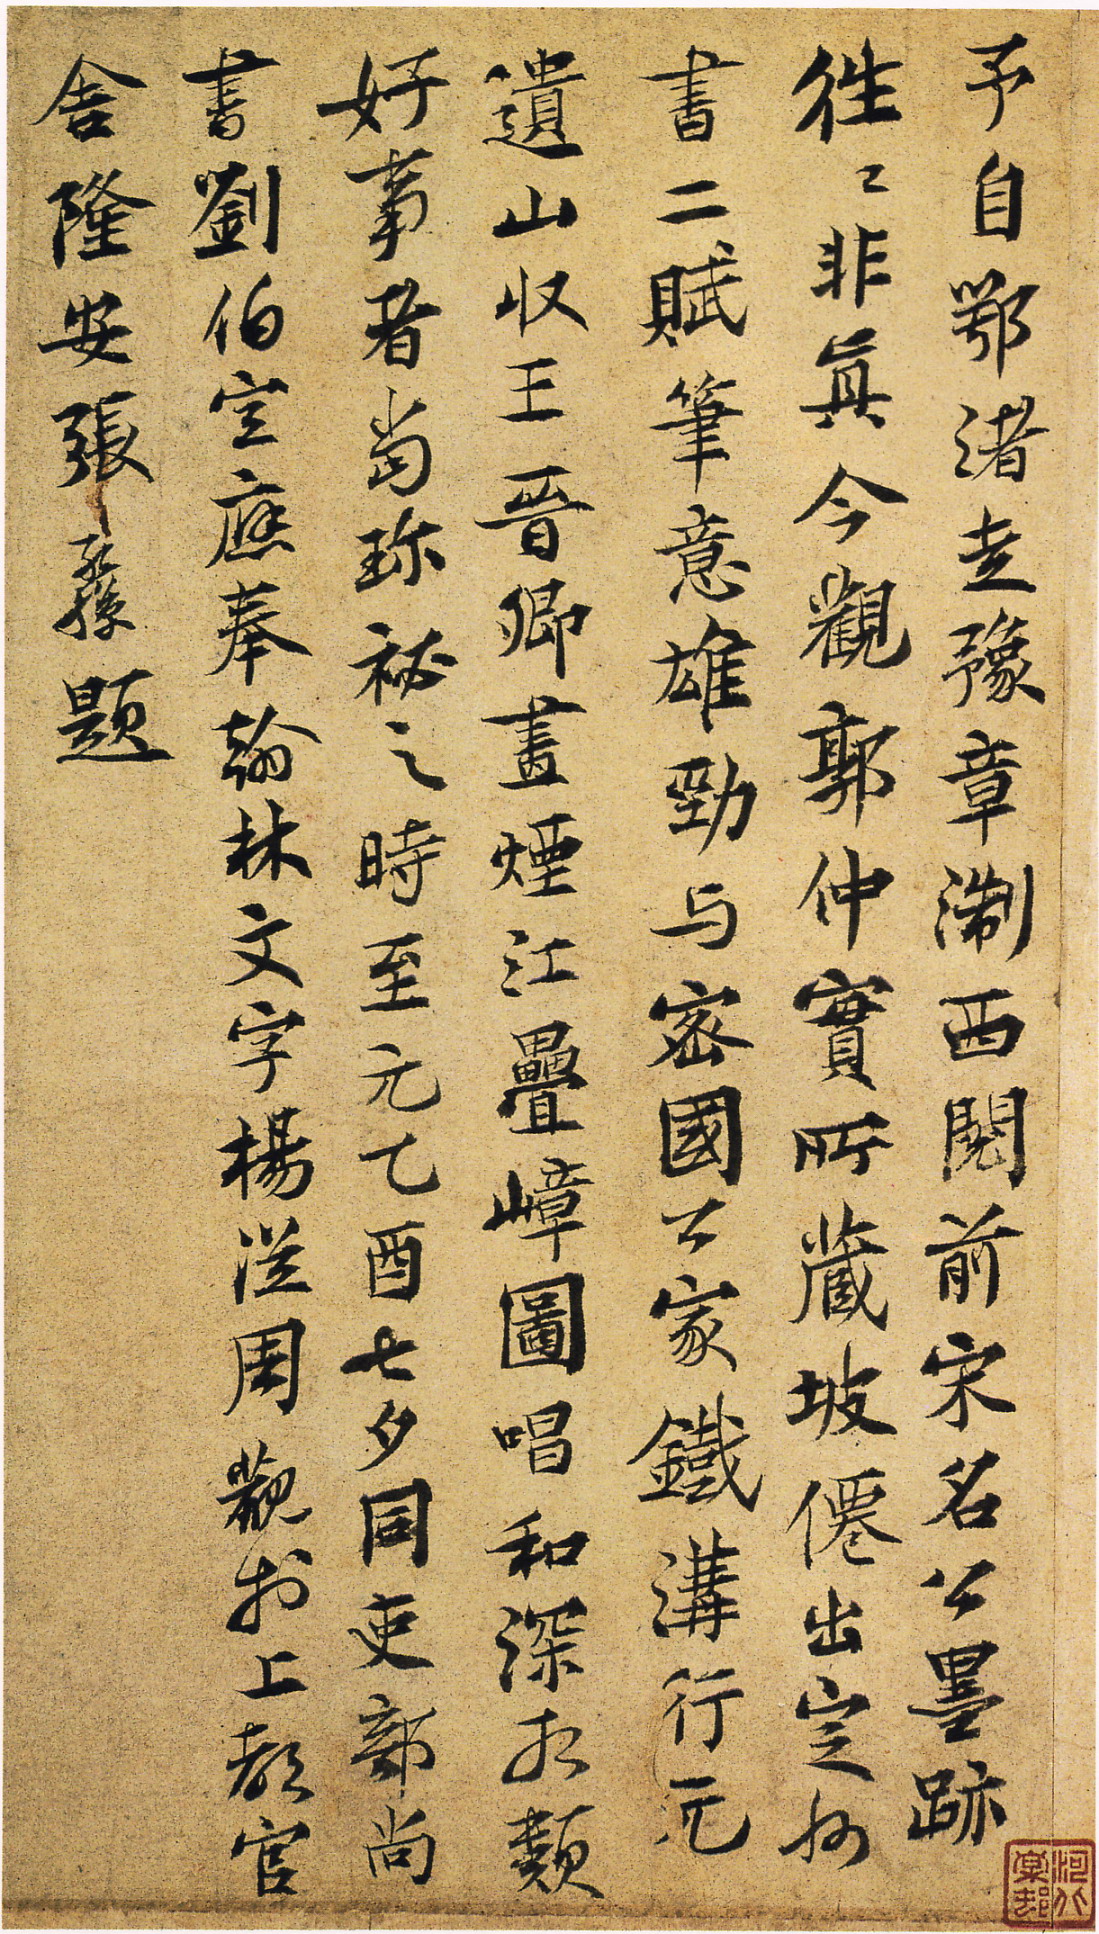 予自鄂渚走豫章淛西閱前宋名公墨跡
徃〻非真今觀郭仲實所藏坡僊出定州
書二賦筆意雄勁与密國公家鐵溝行元
遺山収王晉卿畫煙江疊嶂圖唱和深相類
好事者當珎祕之時至元乙酉七夕同吏部尚
書劉伯宣應奉翰林文字楊從周觀於上都官
舍隆安張孫題